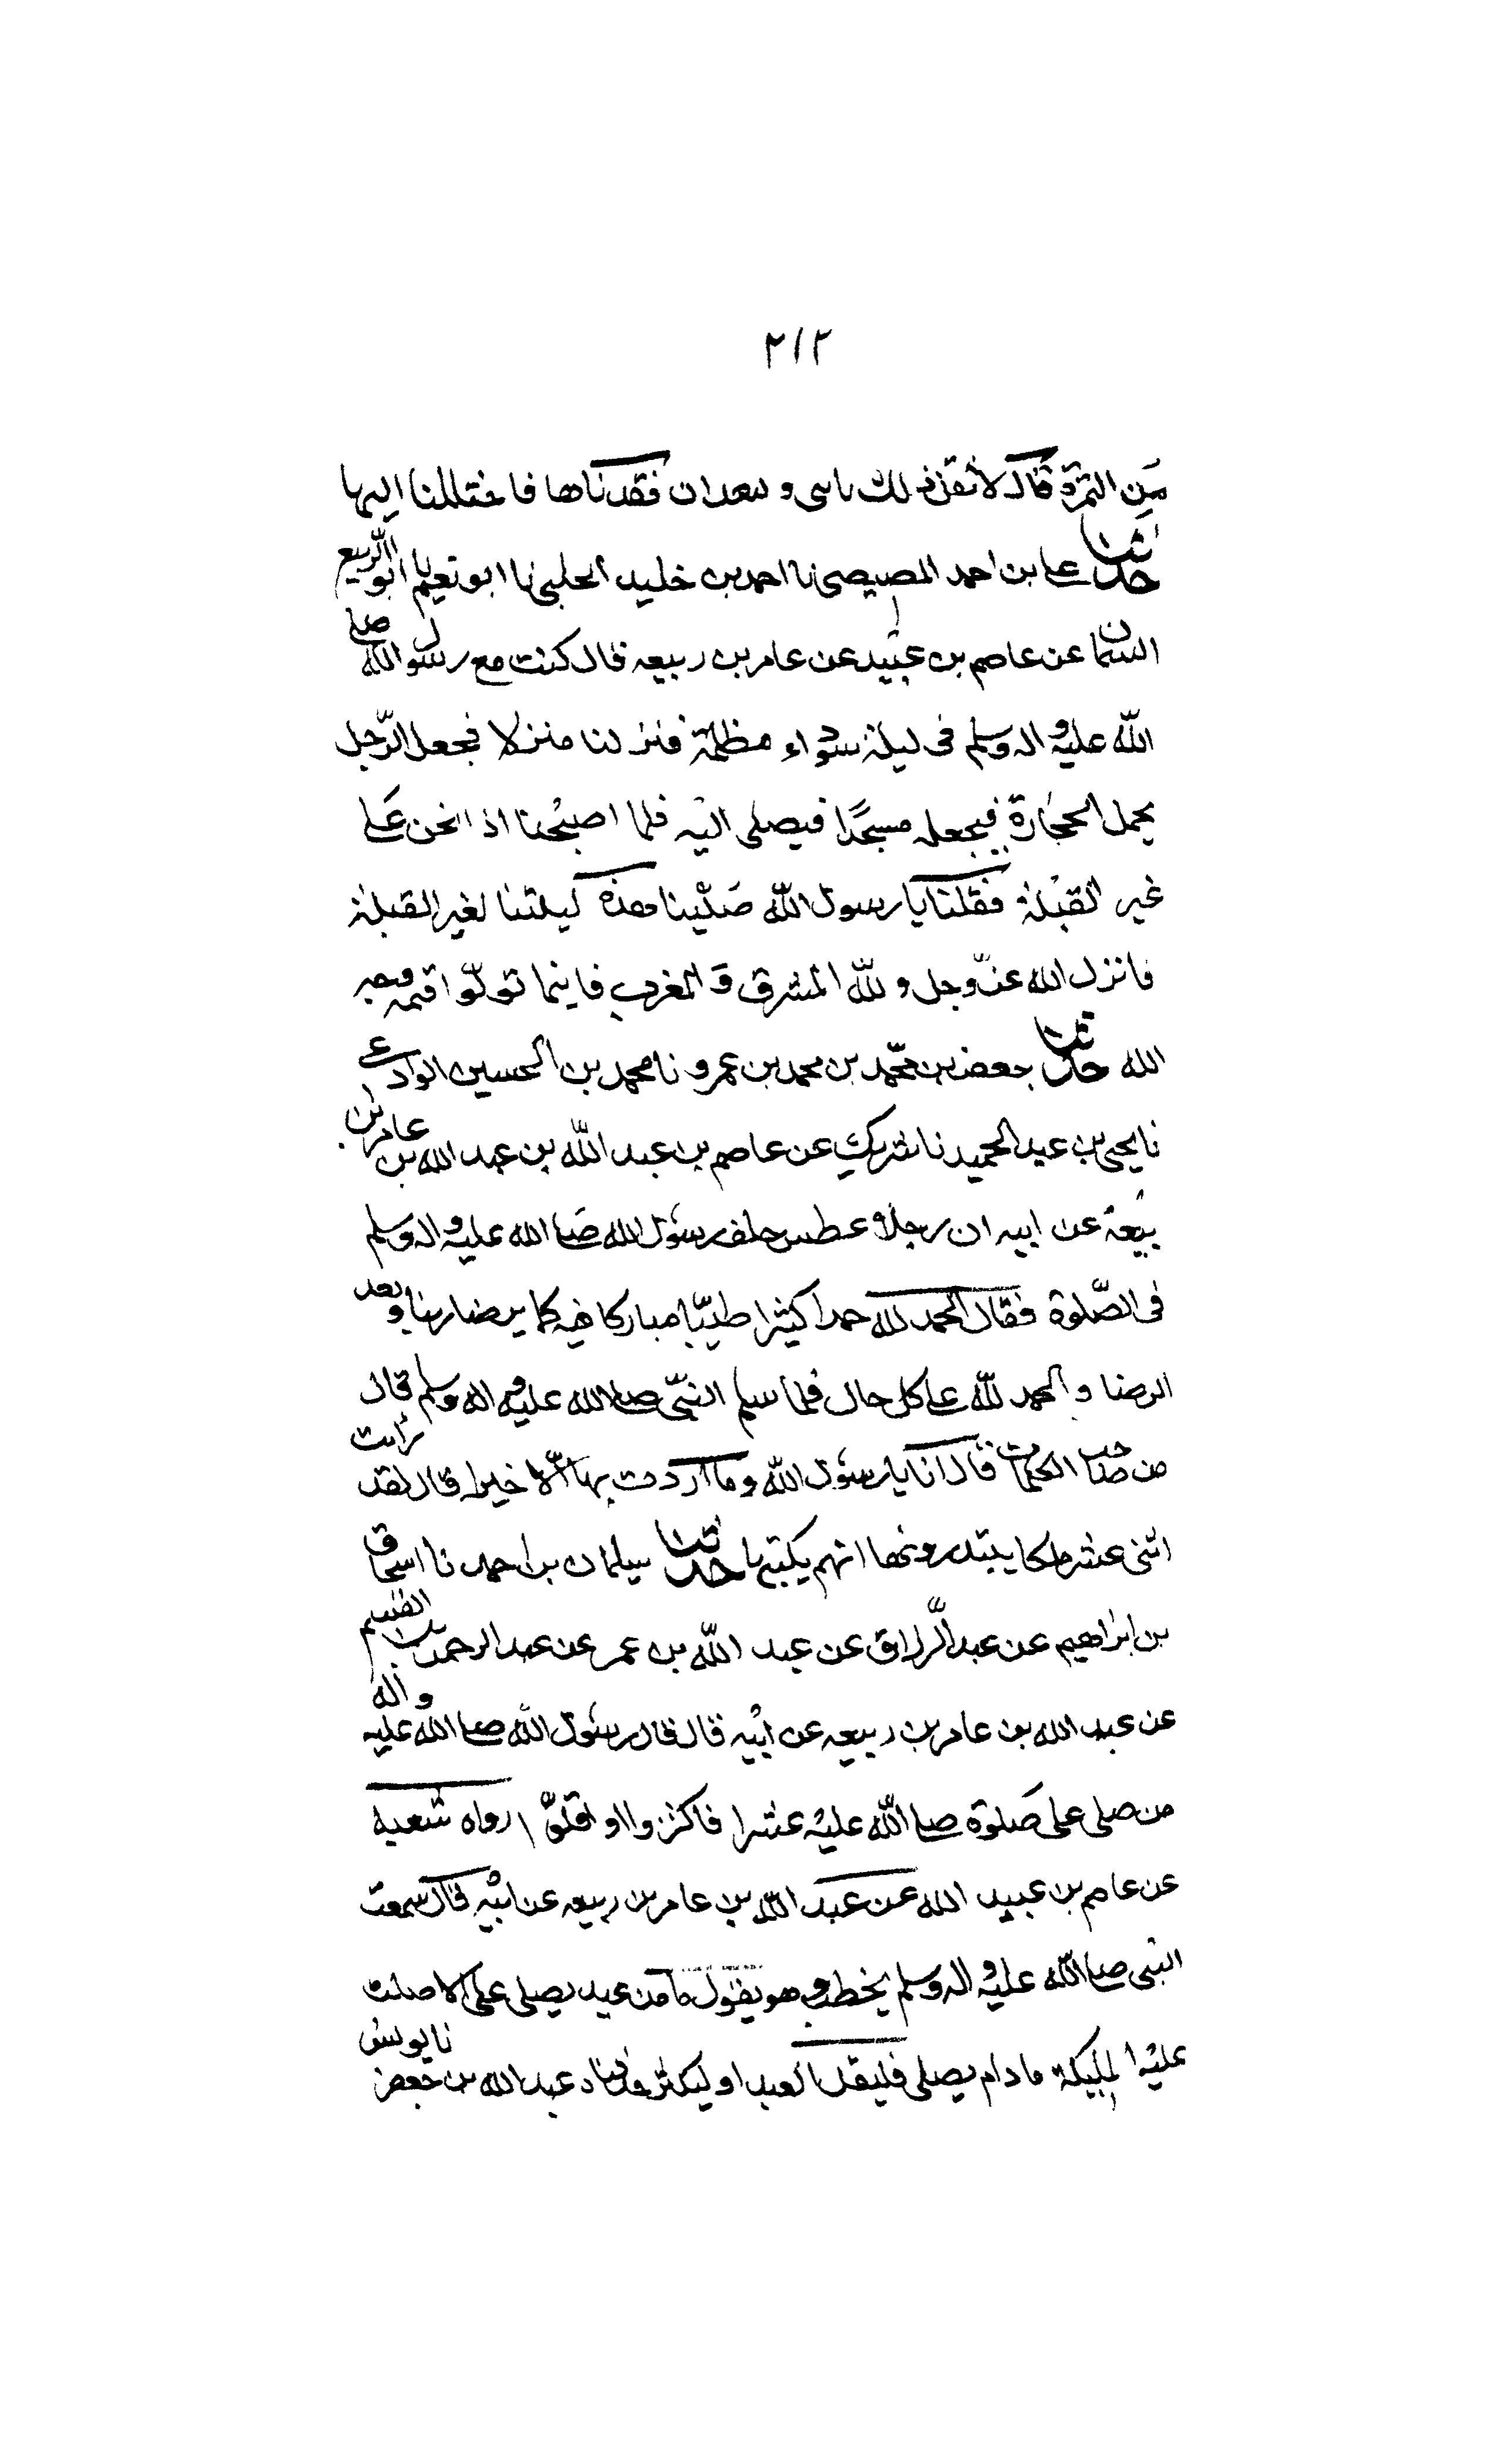 ٢١٢
من التمرة قال لا تقل ذلك يا بنى و لبعد ان فقدناها فاختللنا اليها
حدثنا على بن احمد المصيصى نا احمد بن خليد الحلبى نا ابو نعيم نا ابو الربيع
السمان عن عاصم بن عبيد عن عامر بن ربيعه قال كنت مع رسول الله صلى
الله عليه و اله وسلم فى ليلة سوداء مظلمة فنزلنا منزلا فجعل الرّجل
يحمل الحجارة فيجعله مسجدًا فيصلى اليه فلما اصبحنا اذا نحن على
غير القبلة فقلنا يا رسول الله صَلّينا هذه ليلتنا لغير القبلة
فانزل الله عزّوجل ولله المشرق وَالمغرب فاينما تولّوا فثم وجه
الله حدثنا جعفر بن محمّد بن محمد بن عمرو نا محمد بن الحسين الوادعى
نا يحيى بن عبد الحميد نا شريك عن عاصم بن عبد الله بن عبد الله بن عامر بن ر
بيعة عن ابيه ان رجلا عطس خلف رسول الله صَلى الله عليه و اله وسلم
فى الصّلوة فقال الحمد لله حمدا كثيرا طيبّا مباركا فيه كما يرضا ربنا و بعد
الرضا والحمد لله على كل حال فلما سلم النبّى صلى الله عليه و اله وسلم قال
من صاحب الكلمات قال انا يا رسول الله وما اردت بها الّا خيرا قال لقد رأيت
اثنى عشر ملكا يبتدرونها ايهم يكتبها حدثنا سليمان بن احمد نا اسحاق
بن ابراهيم عن عبد الرّزاق عن عبد الله بن عمر عن عبد الرحمن بن القسم
عن عبد الله بن عامر بن ربيعه عن ابيه قال قال رسول الله صلى الله عليه و اله
من صلى على صَلوة صلى الله عليه عشرا فاكثروا او اقلوّا رواه شعبة
عن عاصم بن عبيد الله عن عبد الله بن عامر بن ربيعه عن ابيه قال سمعت
النبى صلى الله عليه و اله وسلم يخطب و هو يقول ما من عبد يصلى على الا صلت
عليه المليكة ما دام يصلى فليقل العبد او ليكثر حدثنا عبد الله بن جعفر نا يونس